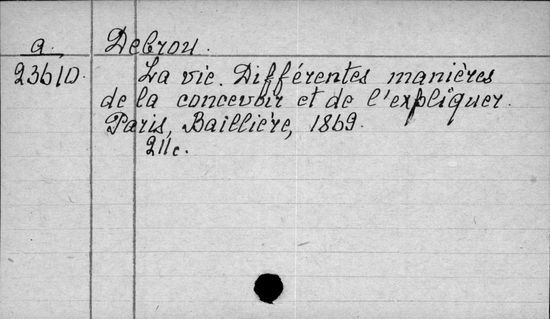 a. Debrou.
23610. La vie. Différentes manières
de la concevoir et de l'expliquer.
Paris, Baillière, 1869.
211c.